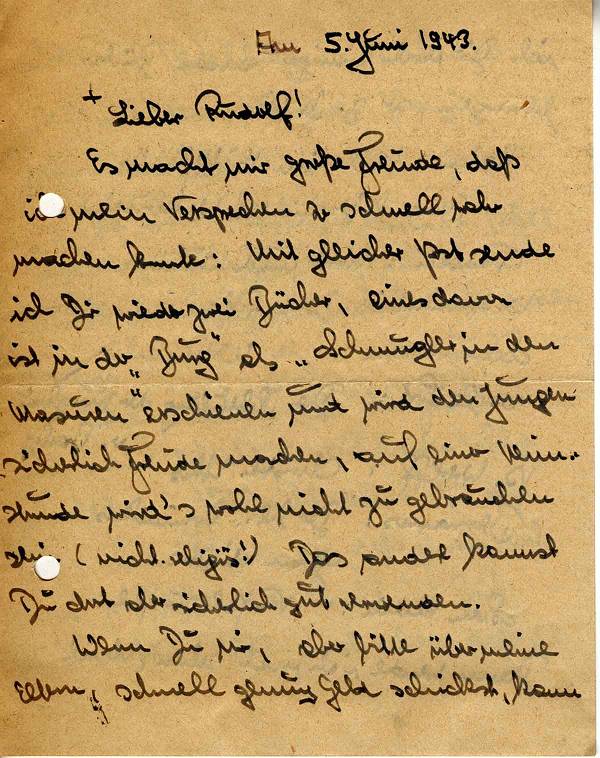 Am 5. Juni 1943.
+ Lieber Rudolf!
Es macht mir große Freude, daß
ich mein Versprechen so schnell wahr
machen konnte: Mit gleicher Post sende
ich Dir wieder zwei Bücher, eines davon
ist in der „Burg" als „Schmuggler in den
Masuren" erschienen und wird den Jungen
sicherlich Freude machen, auf einer
stunde wird's wohl nicht zu gebrauchen
sein (nicht religiös!) Das andere kannst
Du dort aber sicherlich gut verwenden.
Wenn Du mir, aber bitte über meine
Eltern, schnell genug Geld schickst, kann